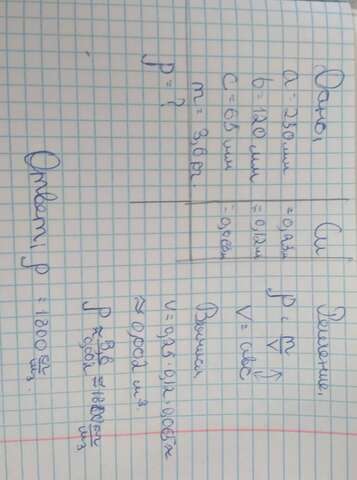 Дано:
a = 250 мм
b = 120 мм
c = 65 мм
m = 3,6 кг.
ρ = ?
Си
= 0,25м
= 0,12м
= 0,065м
Решение.
ρ = m/V
V = abc
Вычисл
V = 0,25 · 0,12 · 0,065 ≈
≈ 0,002 м³
ρ ≈ 3,6/0,002 ≈ 1800 кг/м³
Ответ: ρ = 1800 кг/м³.